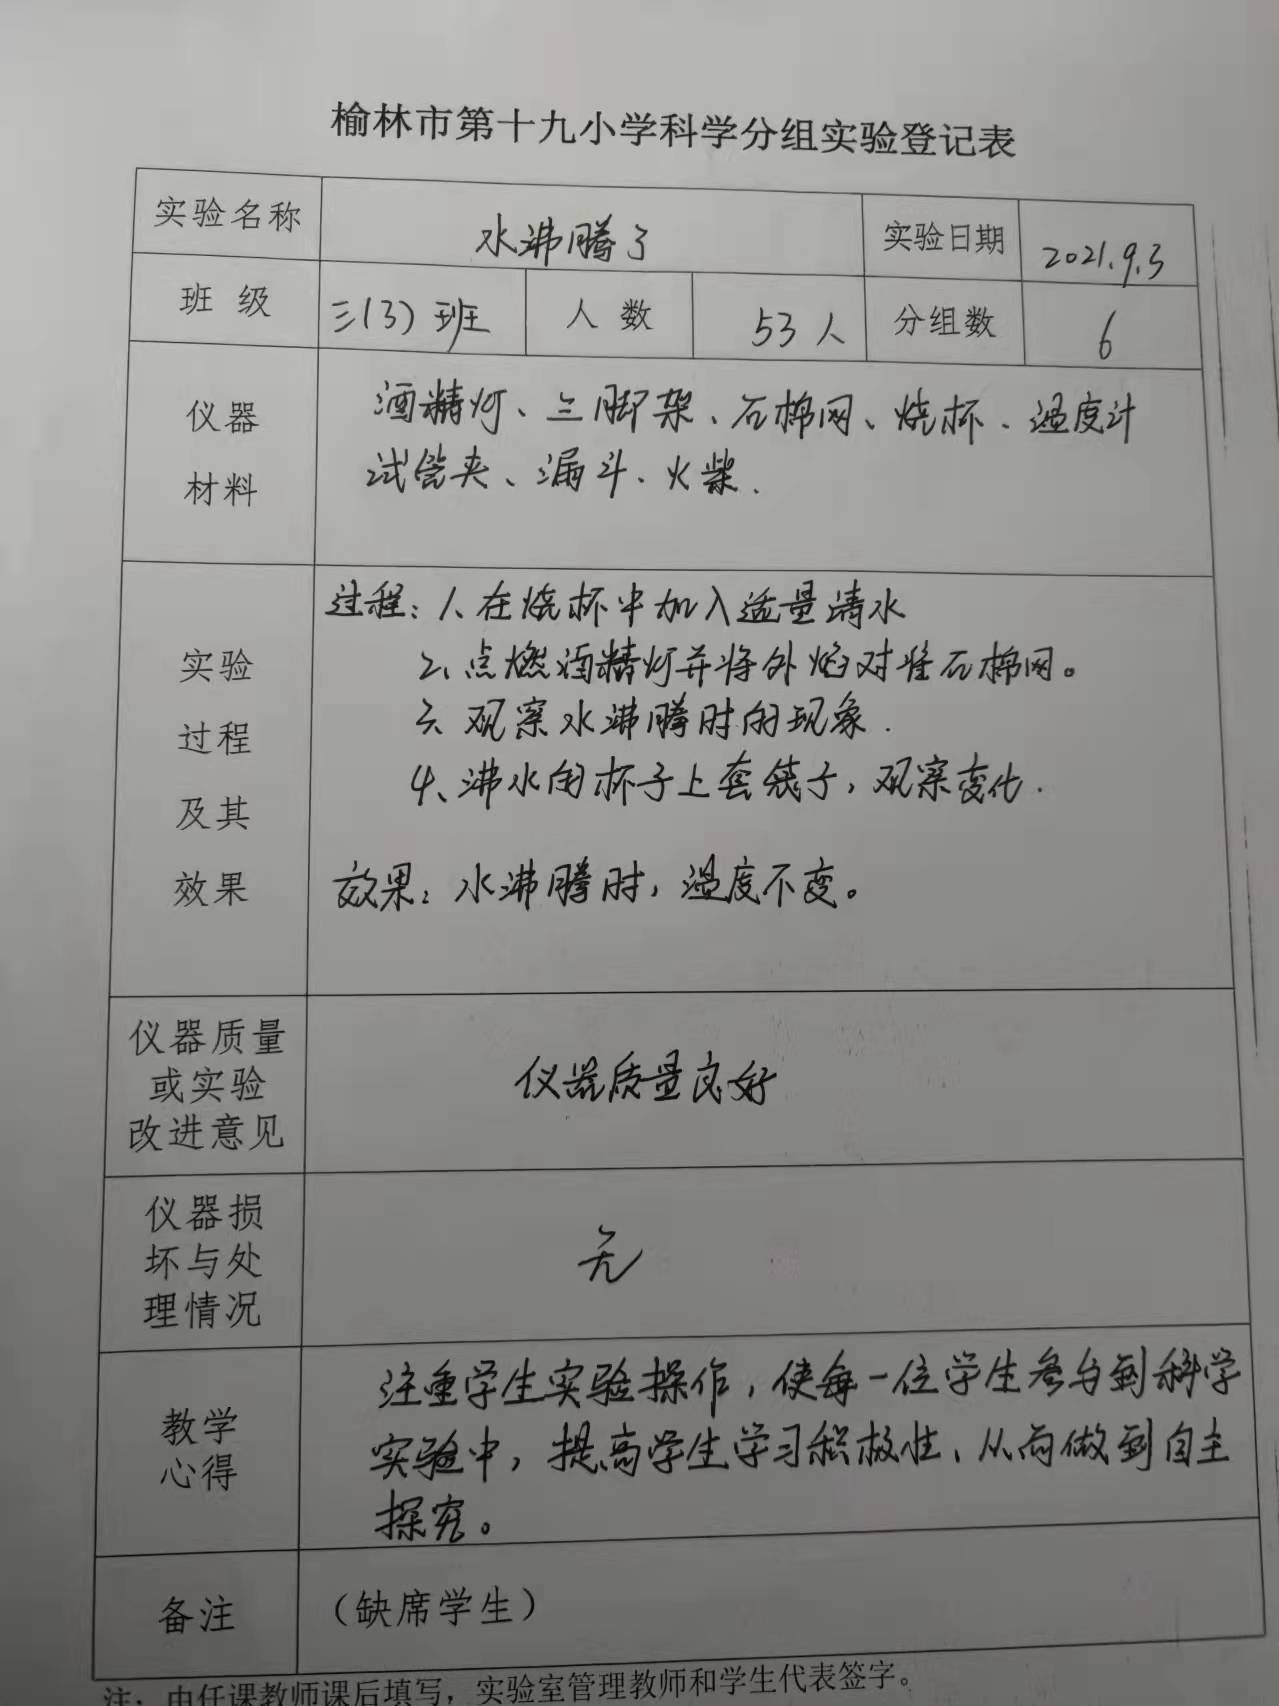 榆林市第十九小学科学分组实验登记表
实验名称 水沸腾了 实验日期 2021.9.3
班级 三(3)班 人数 53人 分组数 6
仪器
材料
酒精灯、三脚架、石棉网、烧杯、温度计
试管夹、漏斗、火柴.
实验
过程
及其
效果
过程：1、在烧杯中加入适量清水
2、点燃酒精灯并将外焰对准石棉网。
3、观察水沸腾时的现象.
4、沸水的杯子上套袋子，观察变化.
效果：水沸腾时，温度不变。
仪器质量
或实验
改进意见
仪器质量良好
仪器损
坏与处
理情况
无
教学
心得
注重学生实验操作，使每一位学生参与到科学
实验中，提高学生学习积极性、从而做到自主
探究。
备注 （缺席学生）
注：由任课教师课后填写，实验室管理教师和学生代表签字。